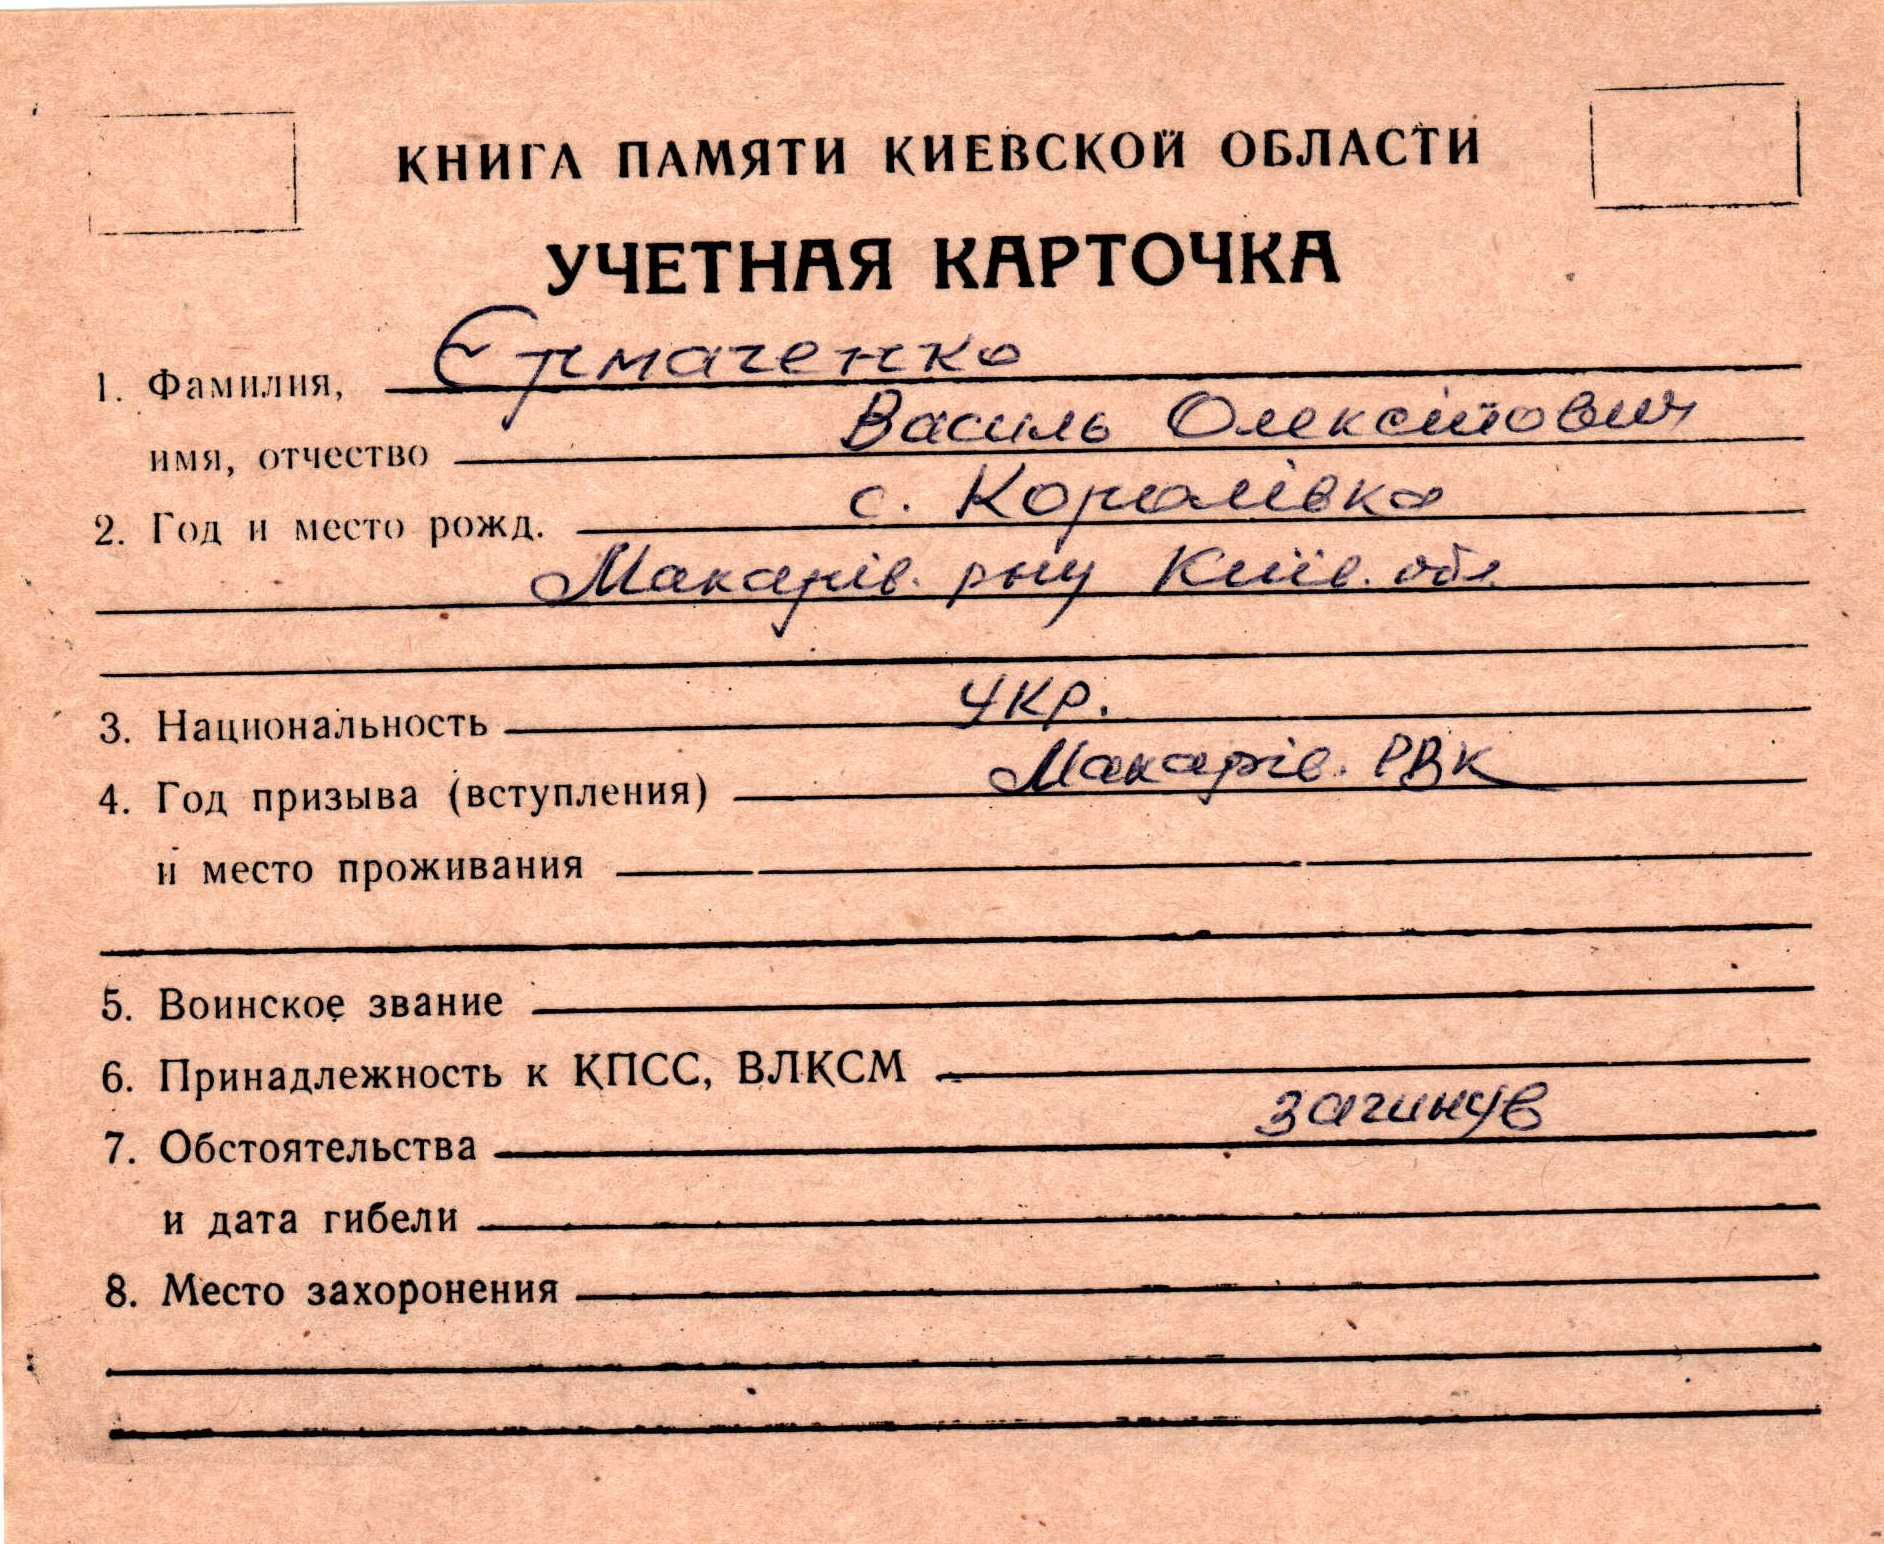 КНИГА ПАМЯТИ КИЕВСКОЙ ОБЛАСТИ
УЧЕТНАЯ КАРТОЧКА
1. Фамилия, Єрмаченко
имя, отчество Василь Олексійович
2. Год и место рожд. с. Королівка
Макарів. р-ну Київ. обл.
3. Национальность укр.
4. Год призыва (вступления) Макарів. РВК
и место проживания
5. Воинское звание
6. Принадлежность к КПСС, ВЛКСМ
7. Обстоятельства загинув
и дата гибели
8. Место захоронения